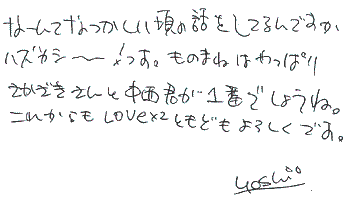 なーんてなつかしい頃の話をしてるんですか
ハズカシ〜〜っす。ものまねはやっぱり
さかざきさんと中西君が1番でしょうね。
これからもLOVE×2ともどもよろしくです。
yoshio